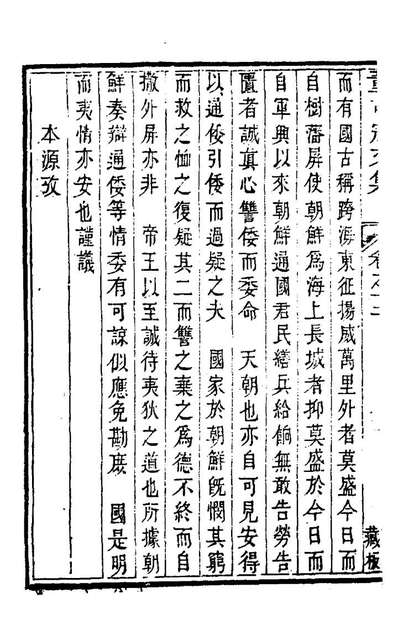 而有國古稱跨海東征揚威萬里外者莫盛今日而
自樹藩屏使朝鮮爲海上長城者抑莫盛於今日而
自軍興以來朝鮮通國君民繕兵給餉無敢告勞告
匱者誠真心讐倭而委命　天朝也亦自可見安得
以通倭引倭而過疑之夫　國家於朝鮮旣憫其窮
而救之恤之復疑其二而讐之棄之爲德不終而自
撤外屏亦非　帝王以至誠待夷狄之道也所據朝
鮮奏辯通倭等情委有可諒似應免勘庻　國是明
而夷情亦安也謹議
本源攷